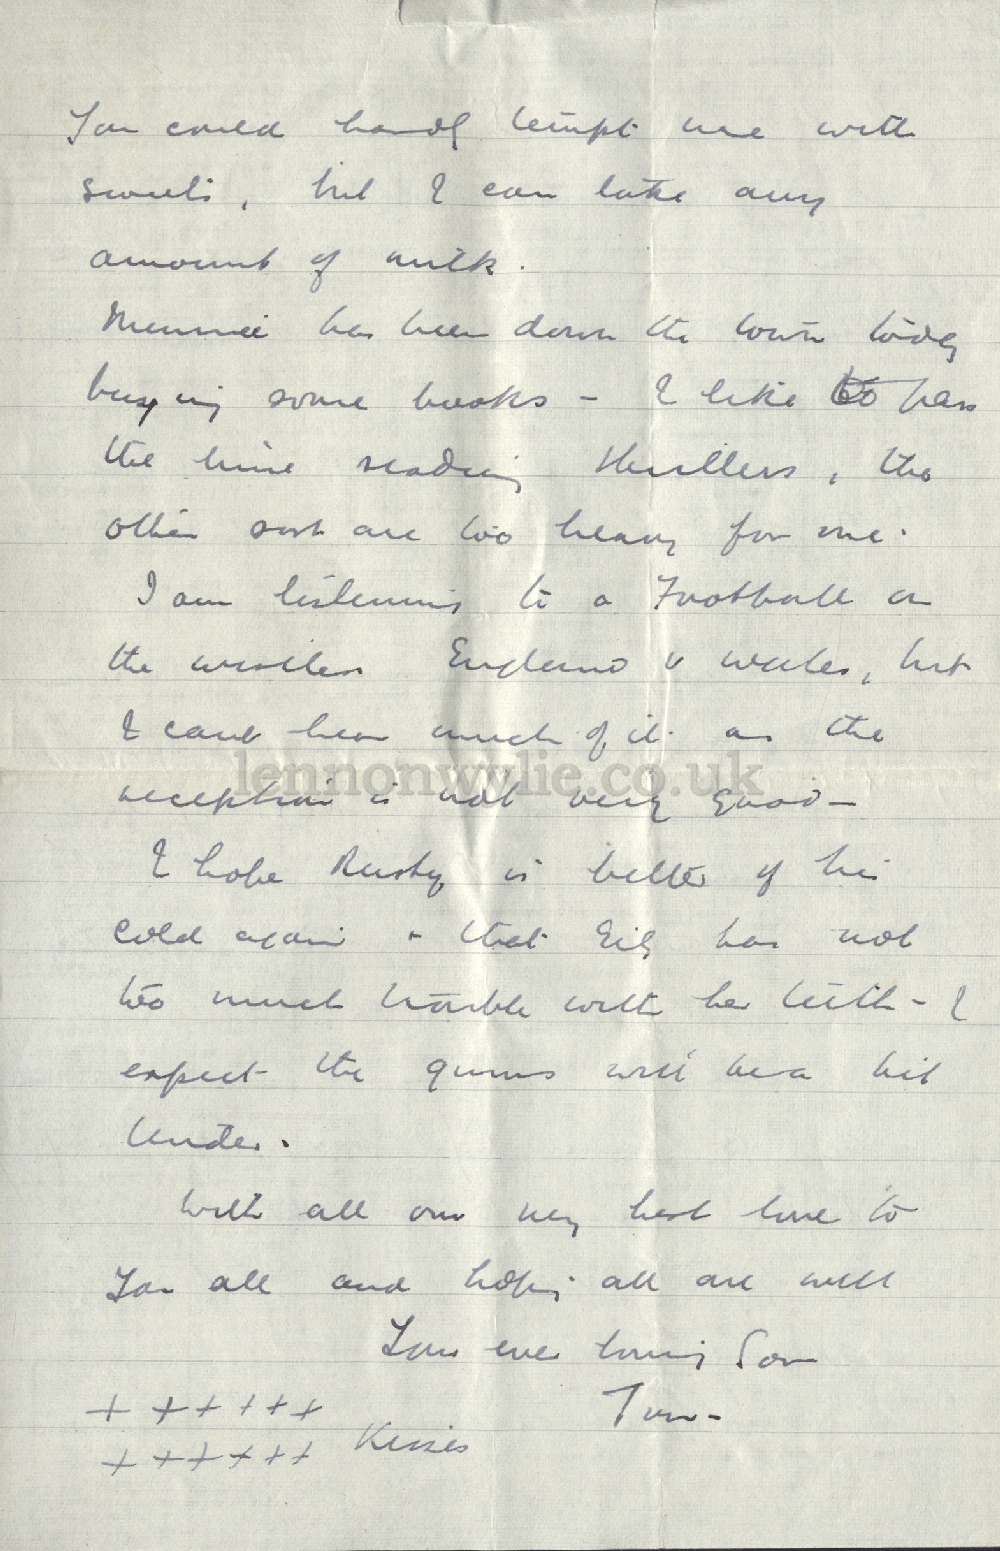 You could hardly tempt me with
sweets, but I can take any
amount of milk.
Minnie has been down the town today
buying some books - I like to pass
the time reading thrillers, the
other sort are too heavy for me.
I am listening to a Football on
the wireless England v Wales, but
I cant hear much of it as the
lennonwylie.co.uk
reception is not very good -
I hope Rusty is better of his
cold again & that Eily has not
too much trouble with her teeth - I
expect the gums will be a bit
tender.
With all our very best love to
You all and hoping all are well
Your ever loving Son
Tom -
+ + + + + +
+ + + + + + Kisses